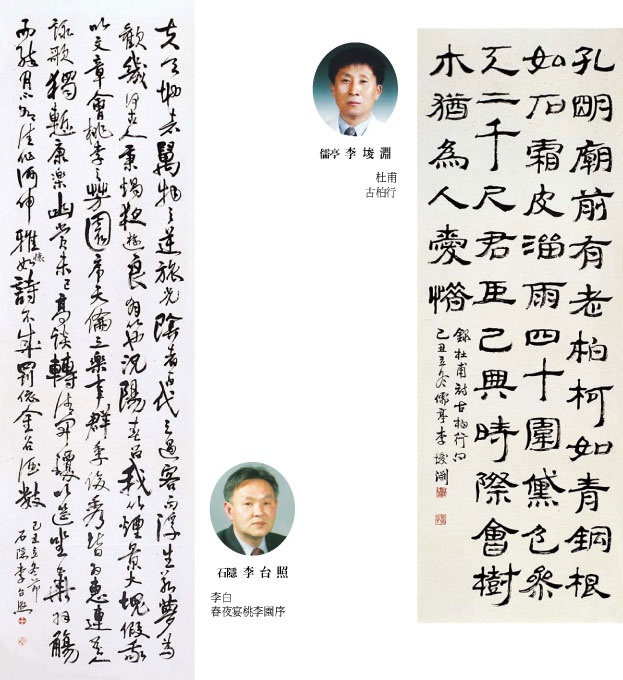 夫天地者萬物之逆旅光陰者百代之過客而浮生若夢為
歡幾何古人秉燭夜遊良有以也況陽春召我以煙景大塊假我
以文章會桃李之芳園序天倫之樂事群季俊秀皆為惠連吾人
詠歌獨慙康樂幽賞未已高談轉清開瓊筵以坐花飛羽觴
而醉月不有佳作何伸雅懷如詩不成罰依金谷酒數
己丑立冬節
石隱李台照
儒亭 李埈淵
杜甫
古柏行
石隱 李台照
李白
春夜宴桃李園序
孔明廟前有老柏柯如青銅根
如石霜皮溜雨四十圍黛色參
天二千尺君臣已與時際會樹
木猶為人愛惜
錄杜甫詩古柏行句
己丑立冬儒亭李埈淵